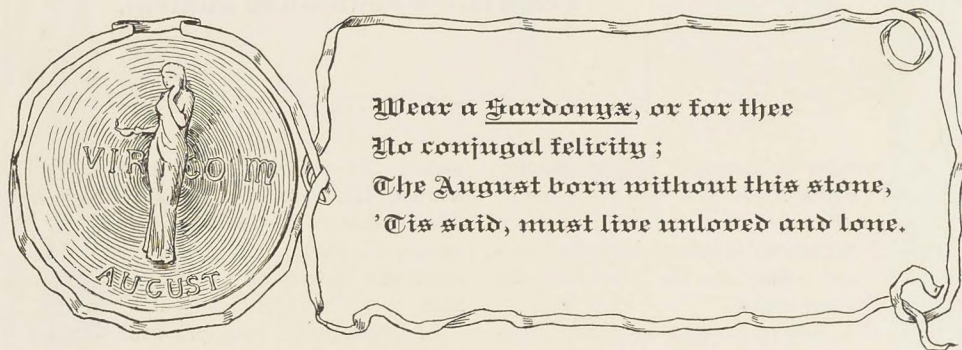 VIRGO ♍
AUGUST
Wear a Sardonyx, or for thee
No conjugal felicity ;
The August born without this stone,
'Tis said, must live unloved and lone.